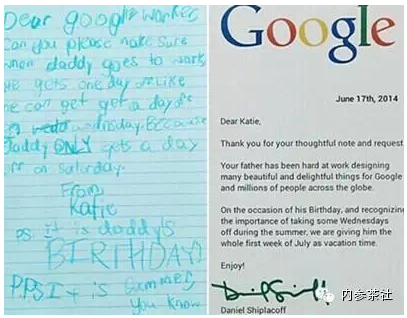 Dear google worker
Can you please make sure
when daddy goes to work
He gets one day off. Like
he can get get a day off
on wednsday. Because
daddy ONLY gets a day
off on saturday.
From
Katie
ps it is daddy's
BIRTHDAY!
P.P.S It is summer
you know
Google
June 17th, 2014
Dear Katie,
Thank you for your thoughtful note and request
Your father has been hard at work designing
many beautiful and delightful things for Google
and millions of people across the globe.
On the occasion of his Birthday, and recognizing
the importance of taking some Wednesdays
off during the summer, we are giving him the
whole first week of July as vacation time.
Enjoy!
Daniel Shiplacoff
内参茶社